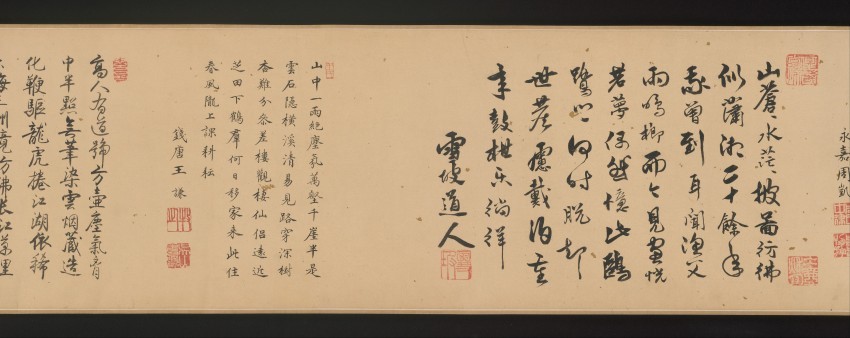 永嘉周凱
山蒼〻水茫〻披圖彷彿
似瀟湘二十餘年
我曾到耳聞漁父
雨鳴榔而今見畫恍
若夢信然憶此鷗
鷺心何時脫却
世塵慮戴月耶
耒鼓枻樂徜徉
雪坡道人
山中一雨絕塵氛萬壑千崖半是
雲石隱橫溪清易見路穿深樹
杳難分參差樓觀棲仙侶遠近
芝田下鶴羣何日移家來此住
春風隴上課耕耘
錢唐王謙
高人有道號方壺塵氣
中年點無筆染雲烟藏造
化鞭驅龍虎捲江湖依稀
海三州竟彷彿長江萬里